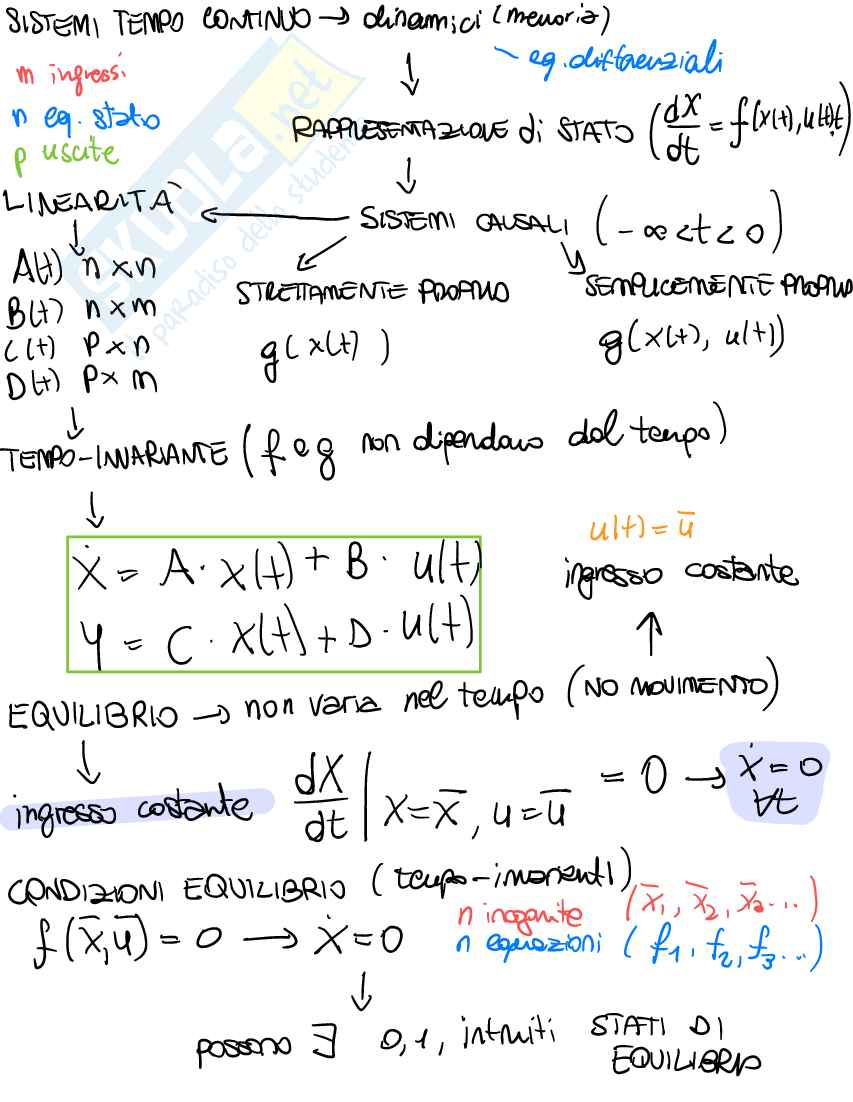 SISTEMI TEMPO CONTINUO → dinamici (memoria)
~ eq. differenziali
m ingressi
n eq. stato
p uscite
RAPPRESENTAZIONE di STATO (dX/dt = f(x(t), u(t), t)
LINEARITÀ
SISTEMI CAUSALI (-∞ < t < 0)
A(t) n x n
B(t) n x m
C(t) p x n
D(t) p x m
STRETTAMENTE PROPRIO
g(x(t) )
SEMPLICEMENTE PROPRIO
g(x(t), u(t))
TEMPO-INVARIANTE (f e g non dipendono dal tempo)
ẋ = A · x(t) + B · u(t)
y = C · x(t) + D · u(t)
u(t) = ū
ingresso costante
EQUILIBRIO → non varia nel tempo (NO MOVIMENTO)
ingresso costante dX/dt | x = x̄, u = ū = 0 → ẋ = 0 ∀t
CONDIZIONI EQUILIBRIO (tempo-invarianti)
f(x̄, ū) = 0 → ẋ = 0
n incognite (x̄₁, x̄₂, x̄₃...)
n equazioni (f₁, f₂, f₃...)
possono ∃ 0, 1, infiniti STATI DI
EQUILIBRIO
SKUOLA.net
il paradiso dello studente